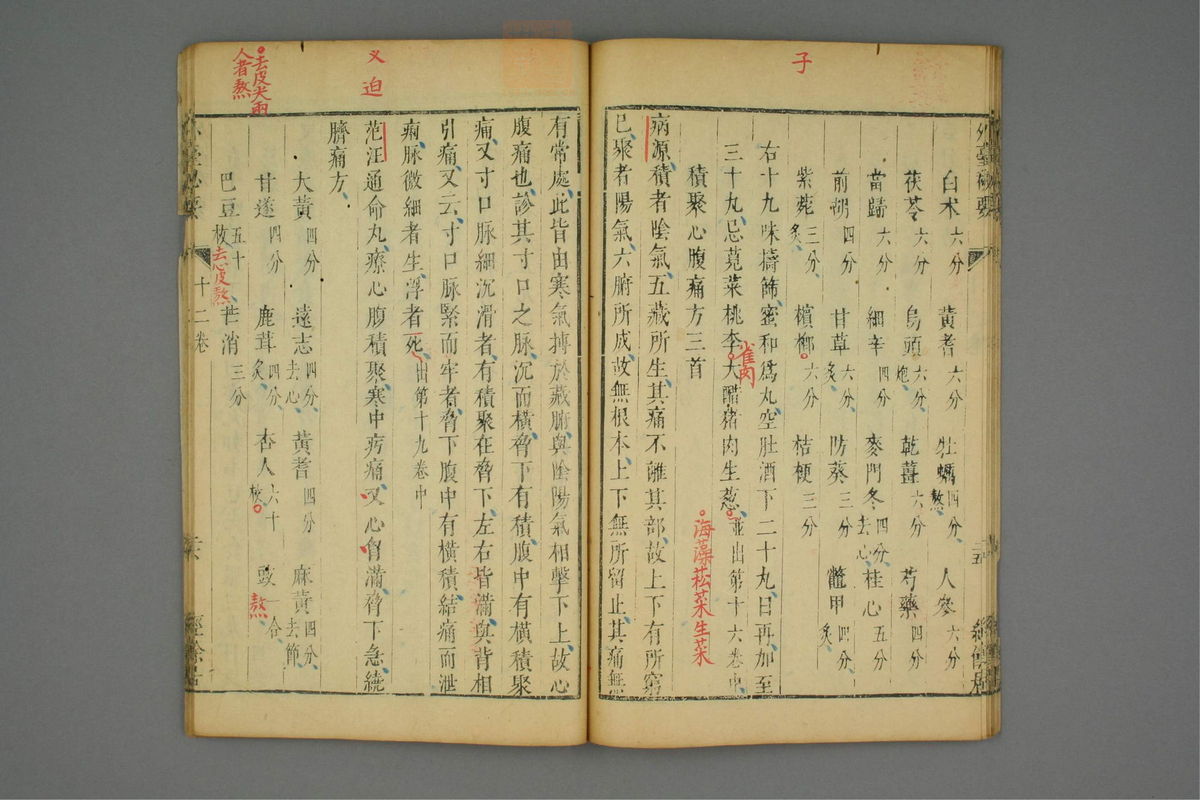 子
外臺秘要
白术六分 黃耆六分 牡蠣四分、熬 人參六分
茯苓六分 烏頭六分、炮 乾薑六分 芍藥四分
當歸六分 細辛四分 麥門冬四分、去心 桂心五分
前胡四分 甘草六分、炙 防葵三分 鼈甲四分、炙
紫菀三分、炙 檳榔六分 桔梗三分
右十九味擣篩蜜和爲丸空肚酒下二十九日再加至
三十丸忌莧菜桃李大醋猪肉生葱並出第十六卷中
雀肉
海藻菘菜生菜
積聚心腹痛方三首
病源積者陰氣五藏所生其痛不離其部故上下有所窮
已聚者陽氣六腑所成故無根本上下無所留止其痛無
有常處此皆由寒氣搏於藏腑與陰陽氣相擊下上故心
腹痛也診其寸口之脈沉而橫脅下有積腹中有橫積聚
痛又寸口脈細沉滑者有積聚在脅下左右皆滿與背相
引痛又云寸口脈緊而牢者脅下腹中有橫積結痛而泄
痢脈微細者生浮者死出第十九卷中
范汪通命丸療心腹積聚寒中疠痛又心胷滿脅下急繞
臍痛方
又 迫
大黃四分 遠志四分、去心 黃耆四分 麻黃四分、去節
甘遂四分 鹿茸四分、炙 杏人六十枚 豉一合 熬
去皮尖兩
人者熬
巴豆五十枚 去心皮熬 芒消三分
十二卷